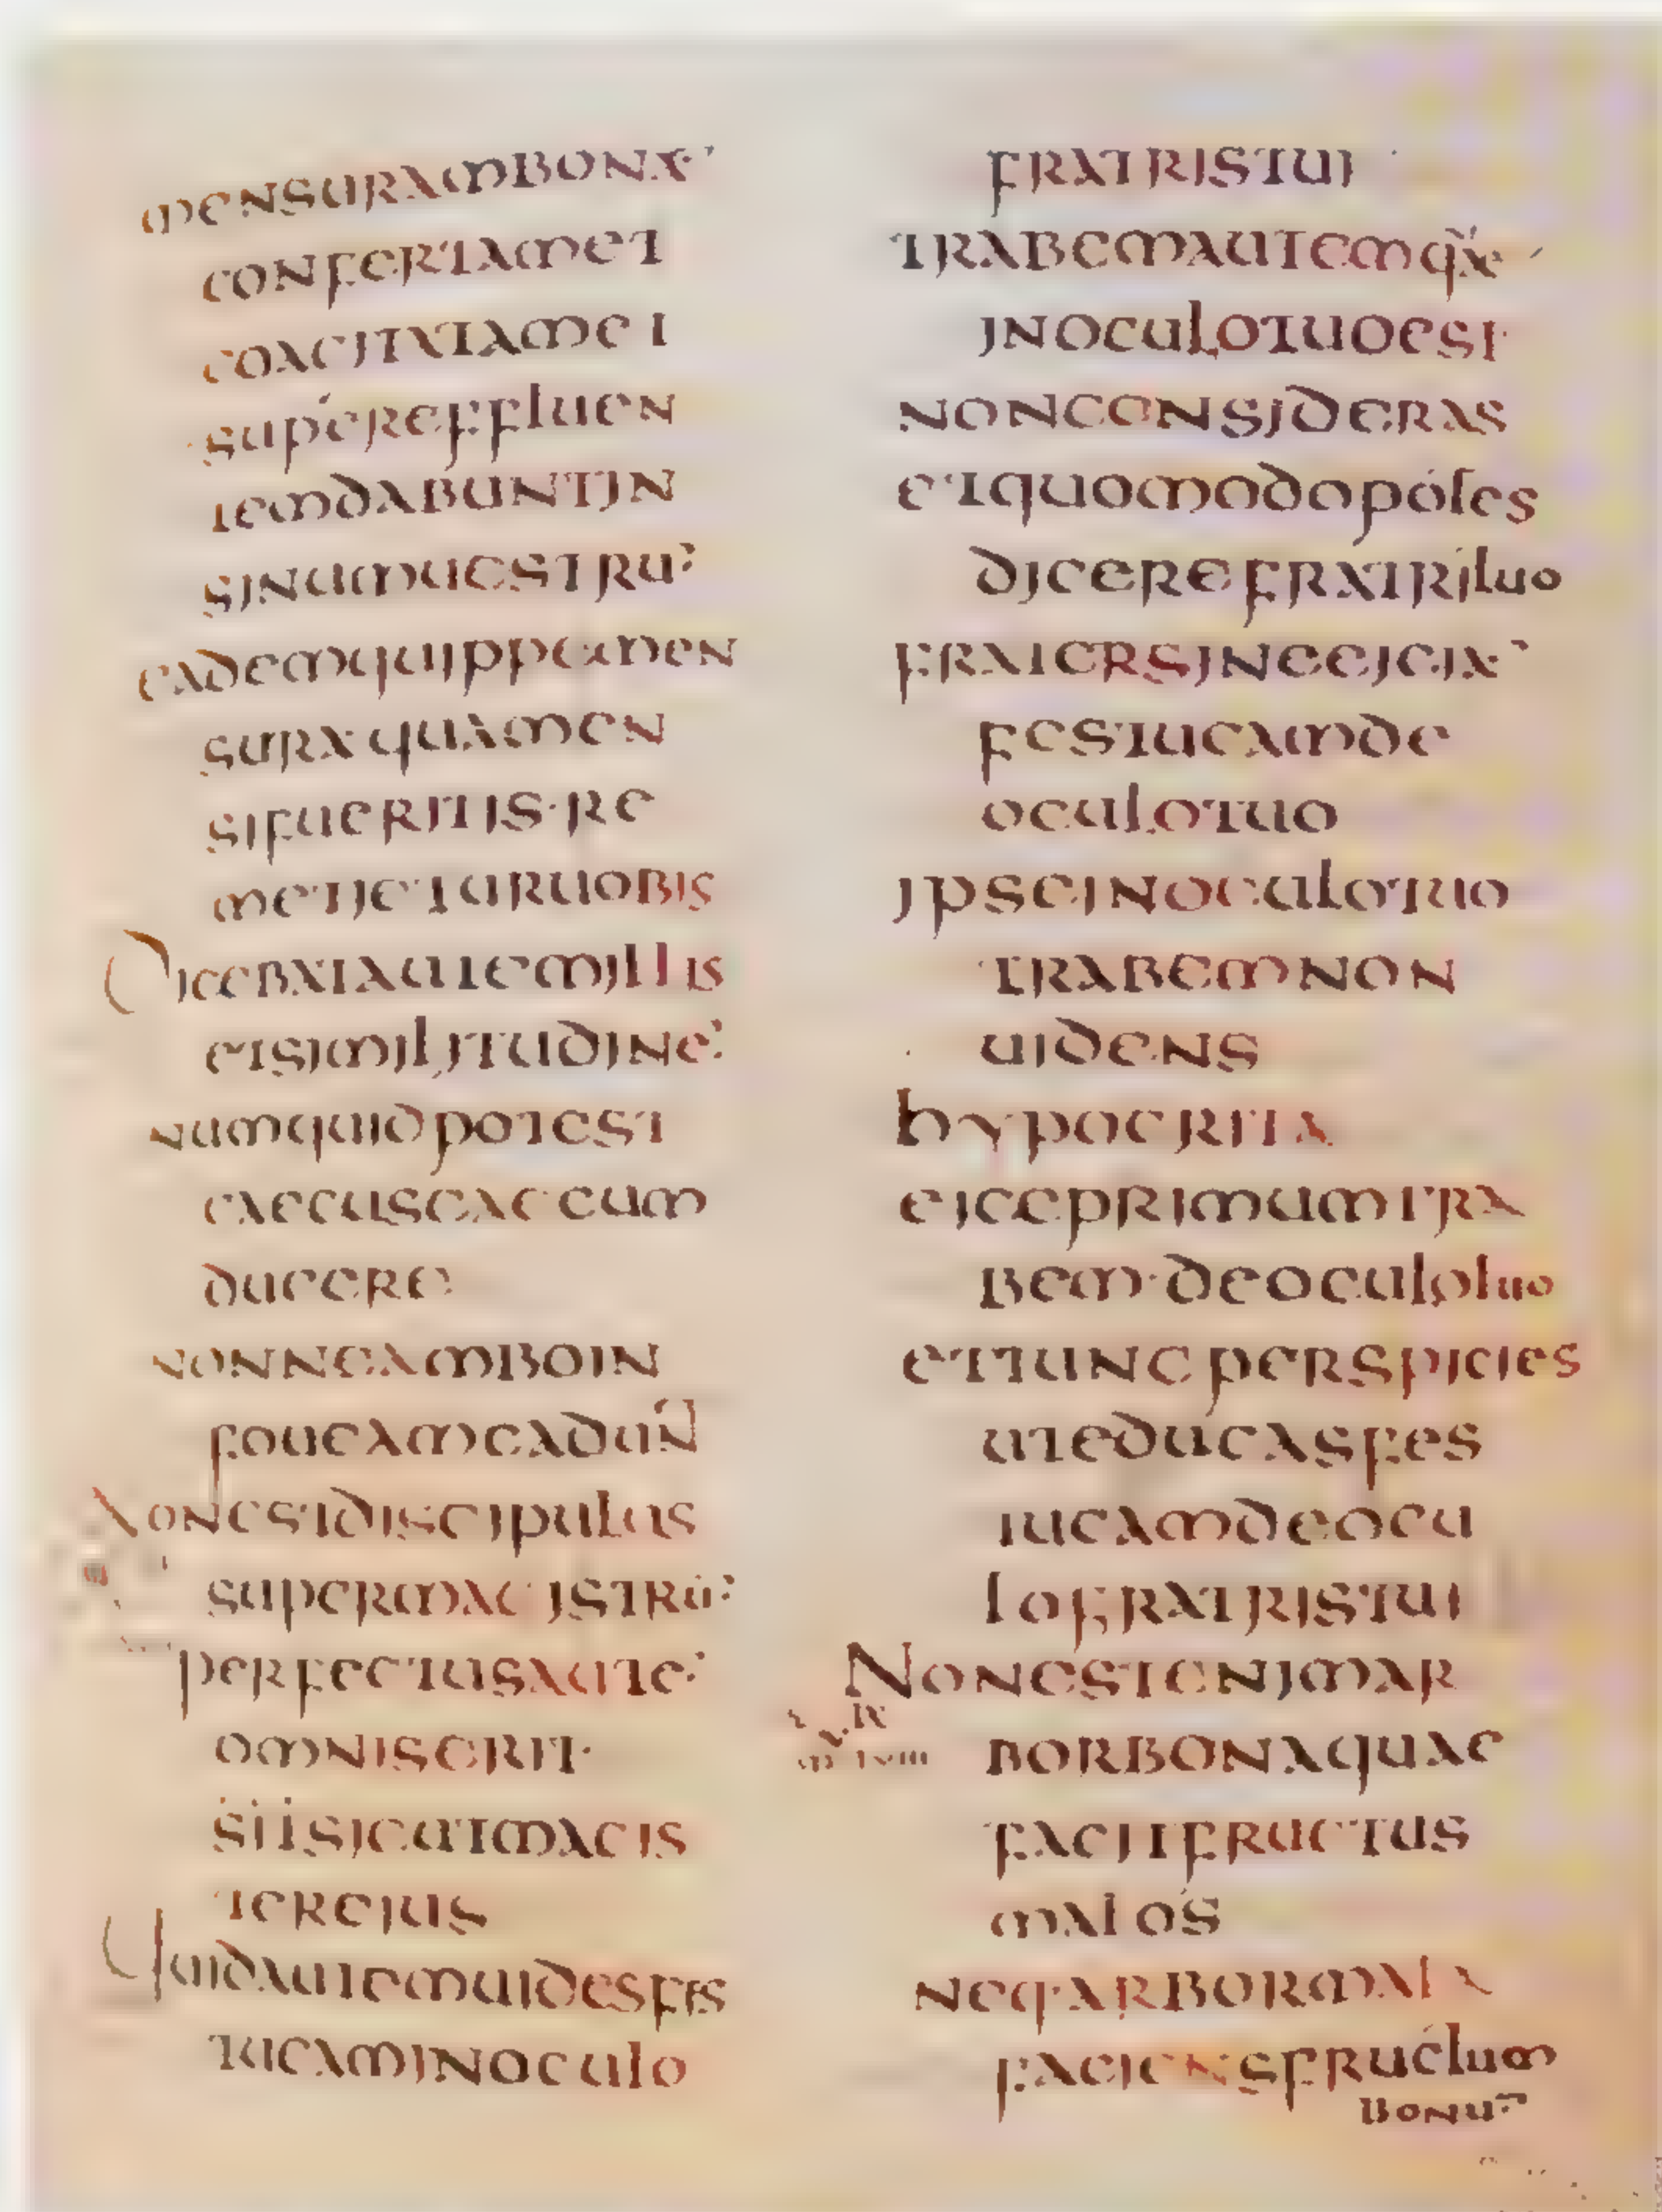 mensurambona·
confertamet
coacitatamet
supereffluen
temdabuntin
sinumuestru·
eademquippemen
suraquamen
sifueritis·re
metieturuobis
dicebatautemillis
etsimilitudine·
numquidpotest
caecuscaecum
ducere
nonneamboin
foueamcadun
nonestdiscipulus
supermagistru·
perfectusaute·
omniserit·
siisicutmagis
tereius
quidautemuidesfes
tucaminoculo
fratristui
trabemautemq̄ae
inoculotuoest·
nonconsideras
etquomodopotes
dicerefratrituo
fratersineeicia·
festucamde
oculotuo
ipseinoculotuo
trabemnon
uidens
hypocrita
eiceprimumtra
bem·deoculotuo
ettuncperspicies
uteducasfes
tucamdeocu
lofratristui
nonestenimar
borbonaquae
facitfructus
malos
neq·arbormala
faciensfructum
bonu·